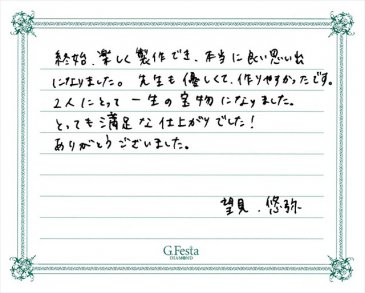 終始、楽しく製作でき、本当に良い思い出
になりました。先生も優しくて、作りやすかったです。
2人にとって一生の宝物になりました。
とっても満足な仕上がりでした!
ありがとうございました。
望見、悠弥
G.Festa
DIAMOND